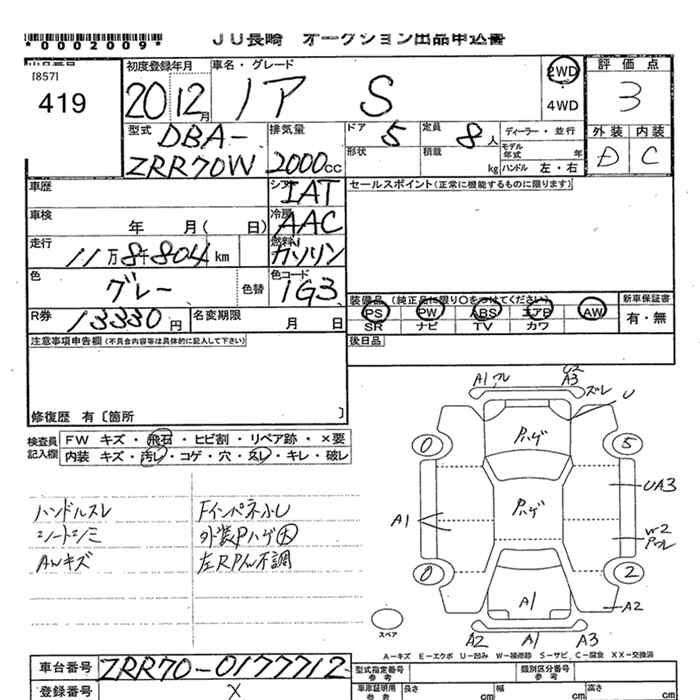 *0002009*
JU長崎 オークション出品申込書
[857]
419
初度登録年月
20 12月
車名・グレード
ノア S
2WD
4WD
評価点
3
外装 内装
D C
型式
DBA-
ZRR70W
排気量
2000cc
ドア 5
形状
定員 8人
積載 kg
ディーラー・並行
モデル年式 年
ハンドル 左・右
車歴
シフト IAT
セールスポイント(正常に機能するものに限ります)
車検 年 月( 日)
冷房 AAC
走行 11万8千804km
燃料 ガソリン
色 グレー 色替
色コード 1G3
装備品 (純正品に限り○をつけてください)
PS PW ABS エアB AW
SR ナビ TV カワ
新車保証書
有・無
R券 13330円
名変期限 月 日
後日品
注意事項申告欄(不具合内容等は具体的に記入して下さい)
修復歴 有[箇所 ]
検査員記入欄
FW キズ・飛石・ヒビ割・リペア跡・×要
内装 キズ・汚れ・コゲ・穴・スレ・キレ・破レ
ハンドルスレ
シートシミ
AWキズ
Fインパネ
外装Pハゲ大
左RPW不調
A1
A3
ズレ
U
Pハゲ
0
5
Pハゲ
UA3
A1
W2
0
2
A1
A2
スペア
A2 A1 A3
A-キズ E-エクボ U-凹み W-補修跡 S-サビ C-腐食 XX-交換済
車台番号 ZRR70-0177712
登録番号 X
型式指定番号
参考
類別区分番号
参考
車庫証明用
参考
長さ cm
幅 cm
高さ cm